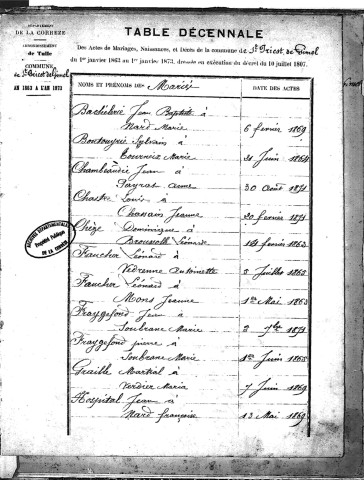 DÉPARTEMENT
DE LA CORRÈZE
ARRONDISSEMENT
de Tulle
COMMUNE
de St Priest de Gimel
AN 1863 A L'AN 1873
TABLE DÉCENNALE
Des Actes de Mariages, Naissances, et Décès de la commune de St Priest de Gimel
du 1er janvier 1863 au 1er janvier 1873, dressée en exécution du décret du 20 juillet 1807.
NOMS ET PRÉNOMS DES Mariés
DATE DES ACTES
Bachèlerie Jean Baptiste à
Nard Marie 6 février 1869
Sylvain à
Marie 21 Juin 1864
Jean à
anne 30 Août 1871
Chastre Louis à
Chassain Jeanne 20 février 1871
Chèze Dominique à
Léonarde 18 février 1863
Faucher Léonard à
Vedrenne Antoinette 3 Juillet 1863
Faucher Léonard à
Mons Jeanne 1er Mai 1865
Fraygefond Jean à
Soubrane Marie 2 7bre 1871
Fraygefond pierre à
Soubrane Marie 1er Juin 1865
Graille Martial à
Verdier Maria 7 Juin 1869
Hospital Jean à
Nard françoise 13 Mai 1869
ARCHIVES DÉPARTEMENTALES
Propriété Publique
DE LA CORRÈZE